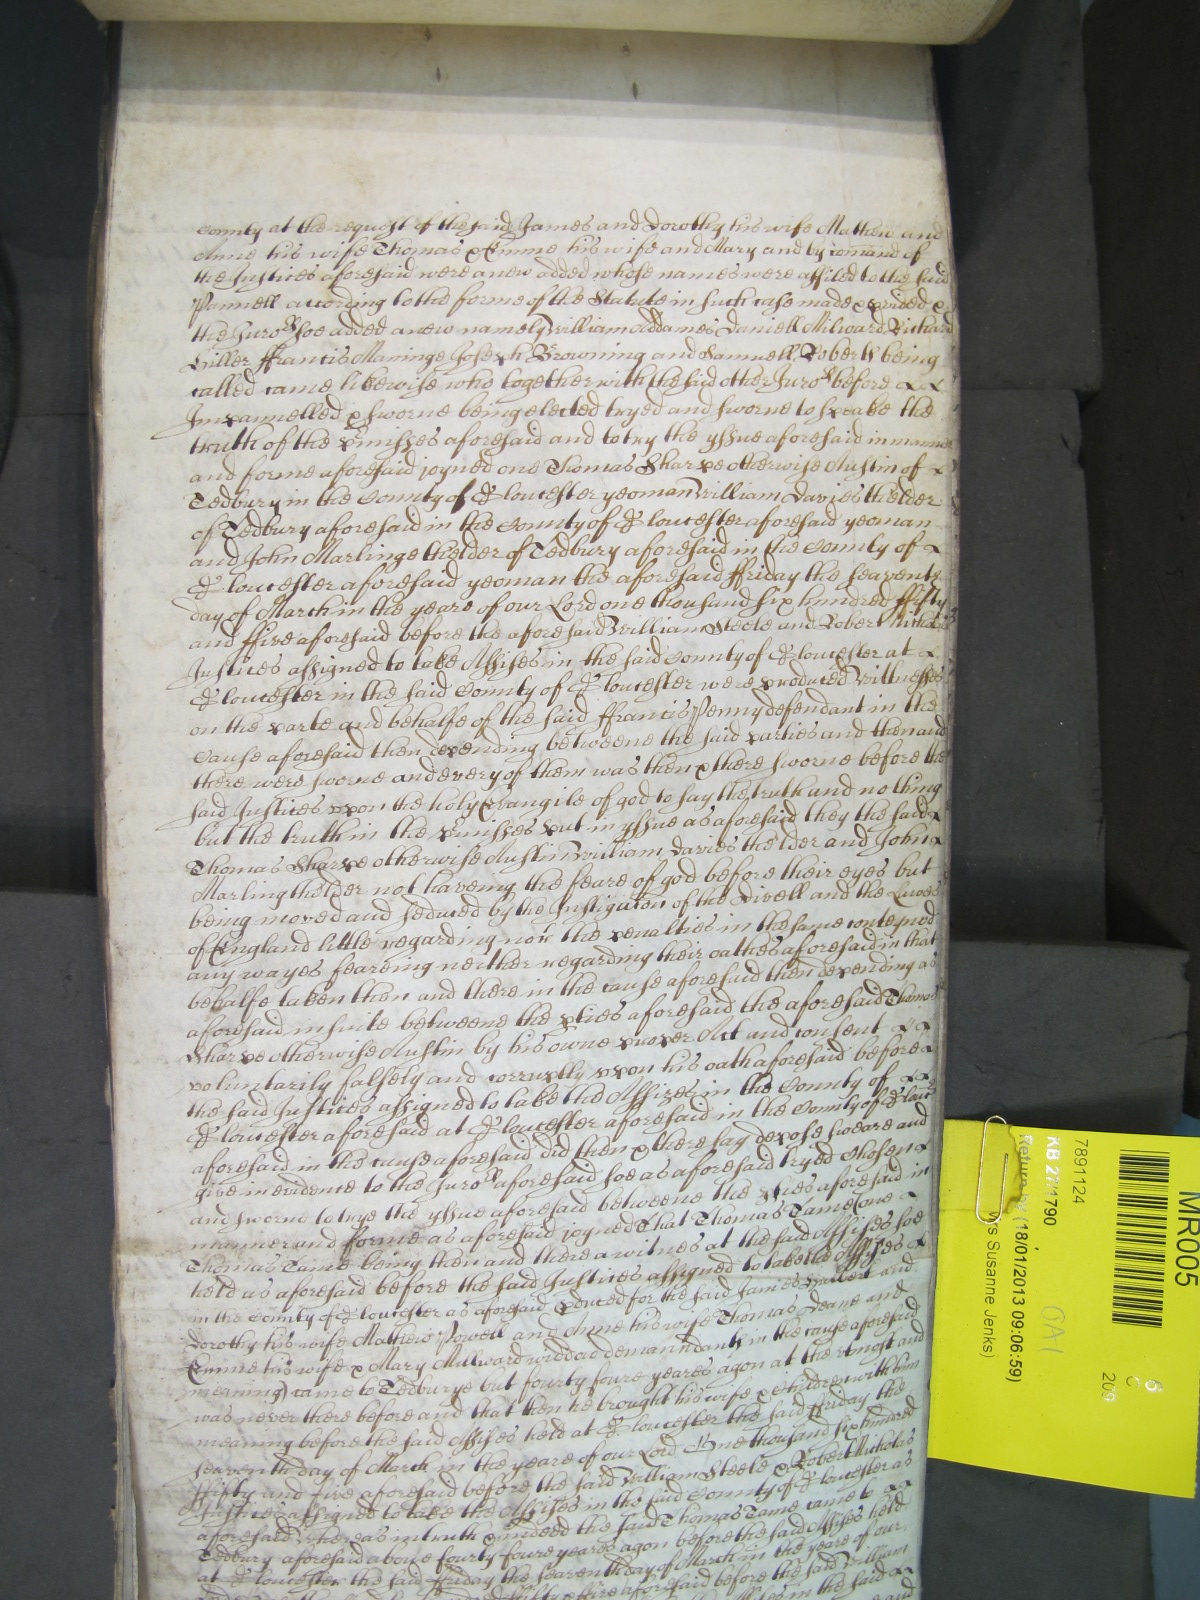 County at the request of the said James and Dorothy his wife Mathew and
Anne his wife Thomas & Emme his wife and Mary and by comand of
the Justices aforesaid were anew added whose names were affiled to the said
Pannell according to the forme of the Statute in such case made & pvided &
the Juro:rs soe added anew namely William Addames Daniell Milward Richard
ffrancis Maninge Joseph Browning and Samuell Roberts being
called came likewise who together with the said other Juro:rs before
Impannelled & sworne being elected tryed and sworne to speake the
truth of the pmisses aforesaid and to try the yssue aforesaid in manner
and forme aforesaid joyned one Thomas Sharpe otherwise Austin of
Tedbury in the County of Gloucester yeoman William Davies thelder
of Tedbury aforesaid in the County of Gloucester aforesaid yeoman
and John Marlinge thelder of Tedbury aforesaid in the County of
Gloucester aforesaid yeoman the aforesaid ffriday the seaventh
day of March in the yeare of our Lord one thousand six hundred ffifty
and ffive aforesaid before the aforesaid William Steele and Robert
Justices assigned to take Assises in the said County of Gloucester at
Gloucester in the said County of Gloucester were produced Wittnesses
on the parte and behalfe of the said ffrancis Penny defendant in the
Cause aforesaid then depending betweene the said parties and then and
there were sworne and every of them was then & there sworne before the
said Justices upon the holy Evangile of god to say the truth and nothing
but the truth in the pmisses put in yssue as aforesaid they the said
Thomas Sharpe otherwise Austin William Davies thelder and John
Marling thelder not haveing the feare of god before their eyes but
being moved and seduced by the Instigacon of the Divell and the Lawes
of England little regarding nor the penalties in the same conteyned
any wayes feareing neither regarding their oathes aforesaid in that
behalfe taken then and there in the cause aforesaid then depending as
aforesaid in suite betweene the pties aforesaid the aforesaid Thomas
Sharpe otherwise Austin by his owne proper Act and consent
voluntarily falsely and corruptly upon his oath aforesaid before
the said Justices assigned to take the Assizes in the County of
Gloucester aforesaid at Gloucester aforesaid in the County of Glouc
aforesaid in the cause aforesaid did then & there say depose sweare and
give in evidence to the Juro:rs aforesaid soe as aforesaid tryed Chosen
and sworne to trye the yssue aforesaid betweene the pties aforesaid in
manner and forme as aforesaid joyned That Thomas Tame (one
Thomas Tame being then and there a witnes at the said Assises soe
held as aforesaid before the said Justices assigned to take the Assises
in the County of Gloucester as aforesaid pduced for the said James and
Dorothy his wife Mathew Powell and Anne his wife Thomas Deane and
Emme his wife & Mary Millward widdow demanndants in the cause aforesaid
meaning) came to Tedburye but fourty foure yeares agon at the utmost and
was never there before and that then he brought his wife & Children with him
meaning before the said Assises held at Gloucester the said ffriday the
seaventh day of March in the yeare of our Lord One thousand six hundred
ffifty and ffive aforesaid before the said William Steele & Robert Nicholas
Justices assigned to take the Assises in the said County of Gloucester as
aforesaid Whereas in truth & indeed the said Thomas Tame came to
Tedbury aforesaid above fourty foure yeares agon before the said Assises held
at Gloucester the said ffriday the seaventh day of March in the yeare of our
ffifty & ffive aforesaid before the said William
MR005
7891124
KB 27/1790
Return by (18/01/2013 09:06:59)
Susanne Jenks)
6
C
209